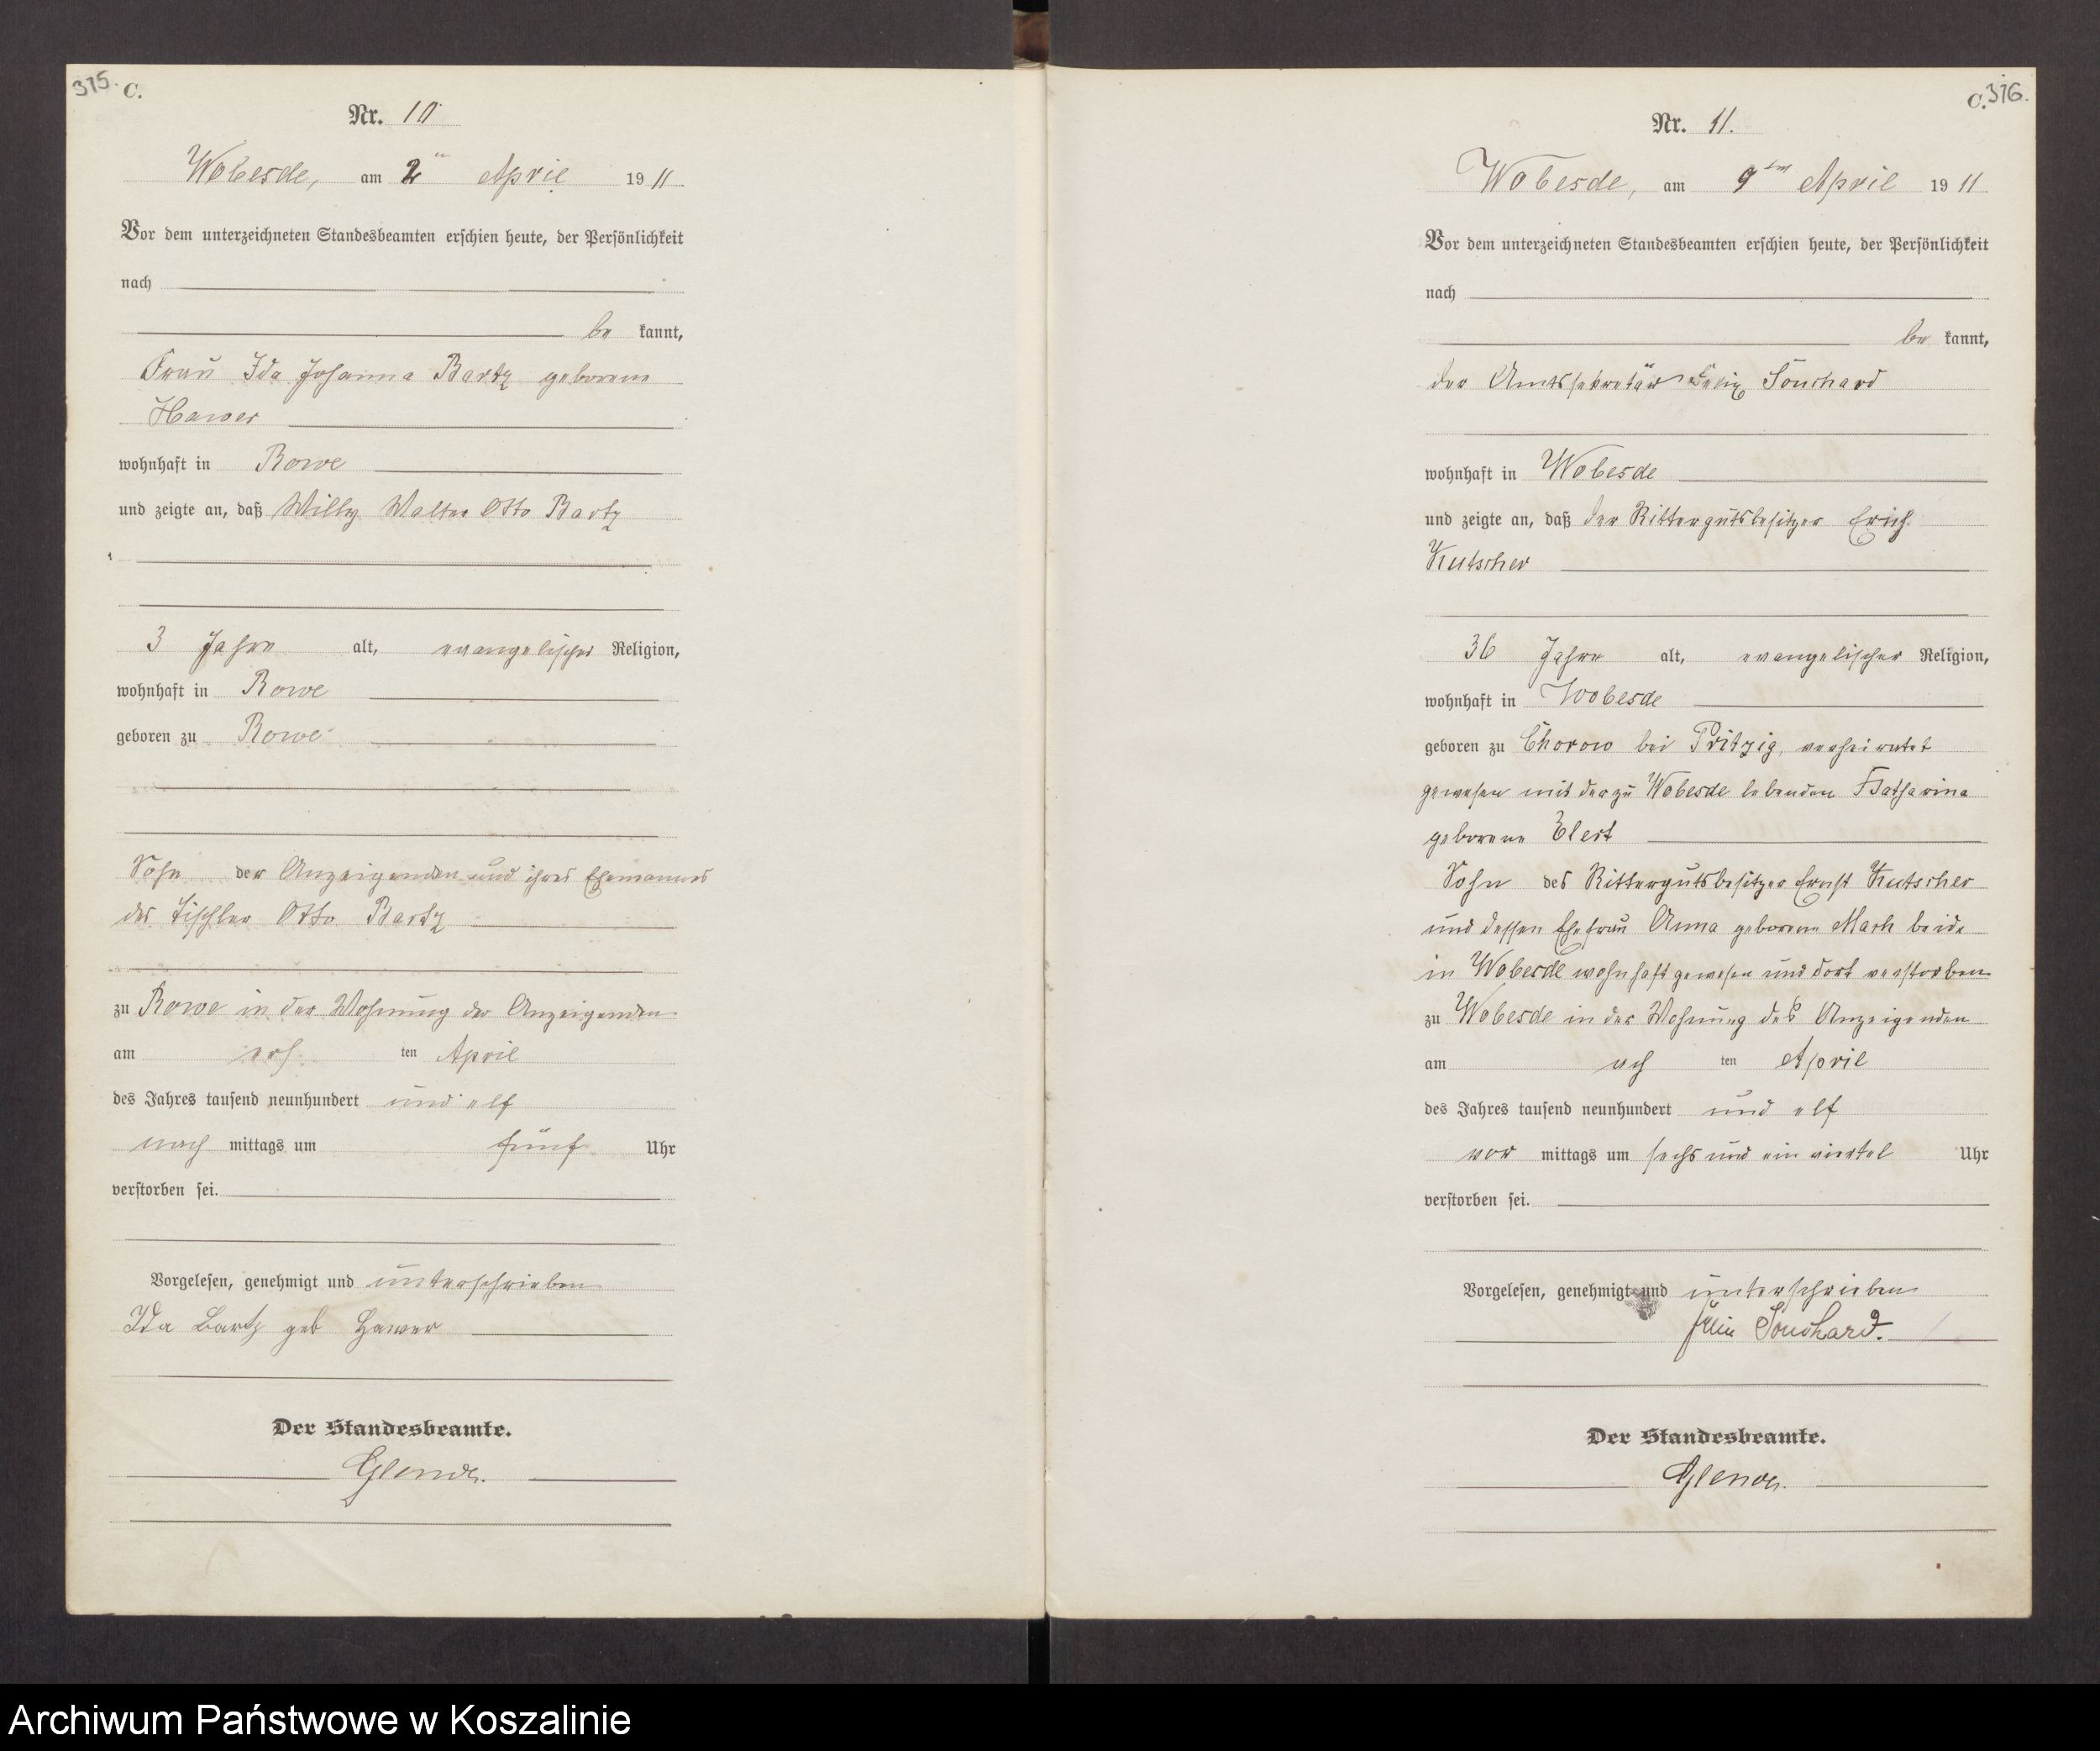 315. C.
Nr. 10
Wobesde, am 2ten April 1911
Vor dem unterzeichneten Standesbeamten erschien heute, der Persönlichkeit
nach
be kannt,
Frau Ida Johanna Bartz geborene
Hawer
wohnhaft in Rowe
und zeigte an, daß Willy Walter Otto Bartz
3 Jahre alt, evangelischer Religion,
wohnhaft in Rowe
geboren zu Rowe
Sohn der Anzeigenden und ihres Ehemannes
des Tischler Otto Bartz
zu Rowe in der Wohnung der Anzeigenden
am ers ten April
des Jahres tausend neunhundert und elf
nach mittags um fünf Uhr
verstorben sei.
Vorgelesen, genehmigt und unterschrieben
Ida Bartz geb Hawer
Der Standesbeamte.
C. 316.
Nr. 11.
Wobesde, am 9ten April 1911
Vor dem unterzeichneten Standesbeamten erschien heute, der Persönlichkeit
nach
be kannt,
der Amtssekretär Felix Souchard
wohnhaft in Wobesde
und zeigte an, daß der Rittergutsbesitzer Erich
Kutscher
36 Jahre alt, evangelischer Religion,
wohnhaft in Wobesde
geboren zu Chorow bei Pritzig, verheiratet
gewesen mit der zu Wobesde lebenden Katharina
geborene Elert
Sohn des Rittergutsbesitzer Ernst Kutscher
und dessen Ehefrau Anna geborene Mach beide
in Wobesde wohnhaft gewesen und dort verstorben
zu Wobesde in der Wohnung des Anzeigenden
am ach ten April
des Jahres tausend neunhundert und elf
vor mittags um sechs und ein viertel Uhr
verstorben sei.
Vorgelesen, genehmigt und unterschrieben
Felix Souchard.
Der Standesbeamte.
Archiwum Państwowe w Koszalinie